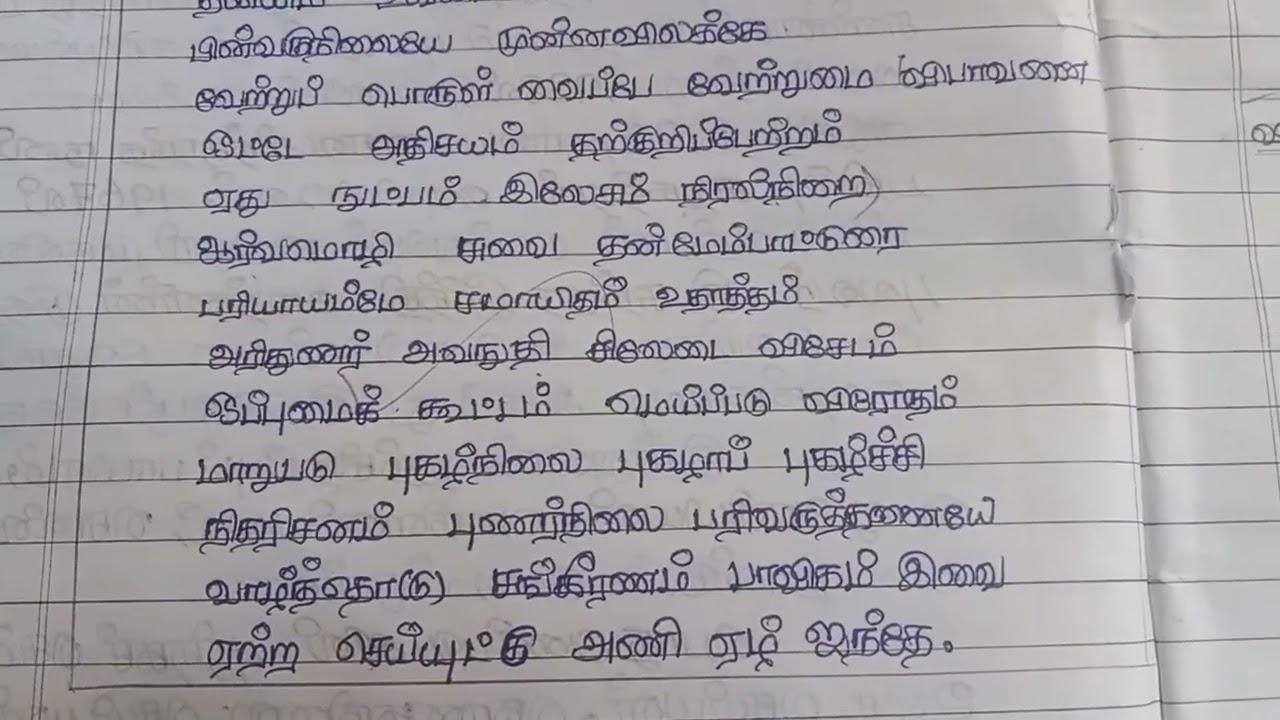 பின்வருநிலையே முன்னவிலக்கே
வேற்றுப் பொருள் வைப்பே வேற்றுமை விபாவனை
ஒட்டே அதிசயம் தற்குறிப்பேற்றம்
ஏது நுட்பம் இலேசம் நிரல்நிறை
ஆர்வமொழி சுவை தன்மேம்பாட்டுரை
பரியாயம்மே சமாயிதம் உதாத்தம்
அரிதுணர் அவநுதி சிலேடை விசேடம்
ஒப்புமைக் கூட்டம் மெய்ப்படு விரோதம்
மாறுபடு புகழ்நிலை புகழாப் புகழ்ச்சி
நிதரிசனம் புணர்நிலை பரிவருத்தனையே
வாழ்த்தொடு சங்கீரணம் பாவிகம் இவை
ஏற்ற செய்யுட்கு அணி ஏழ் ஐந்தே.